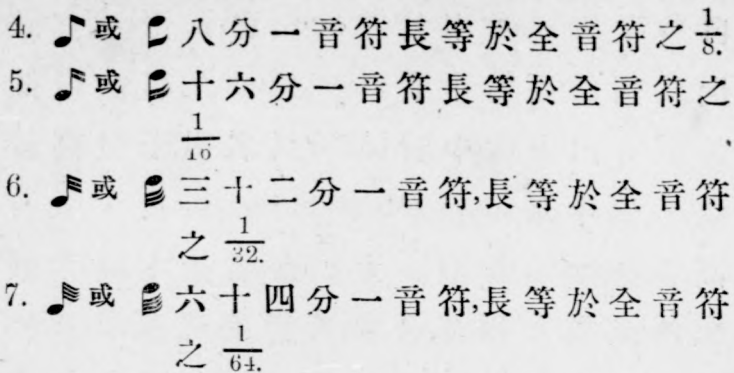 4. ♪或 八分一音符長等於全音符之 1/8.
5. 或 十六分一音符長等於全音符之
1/16
6. 或 三十二分一音符,長等於全音符
之 1/32.
7. 或 六十四分一音符,長等於全音符
之 1/64.